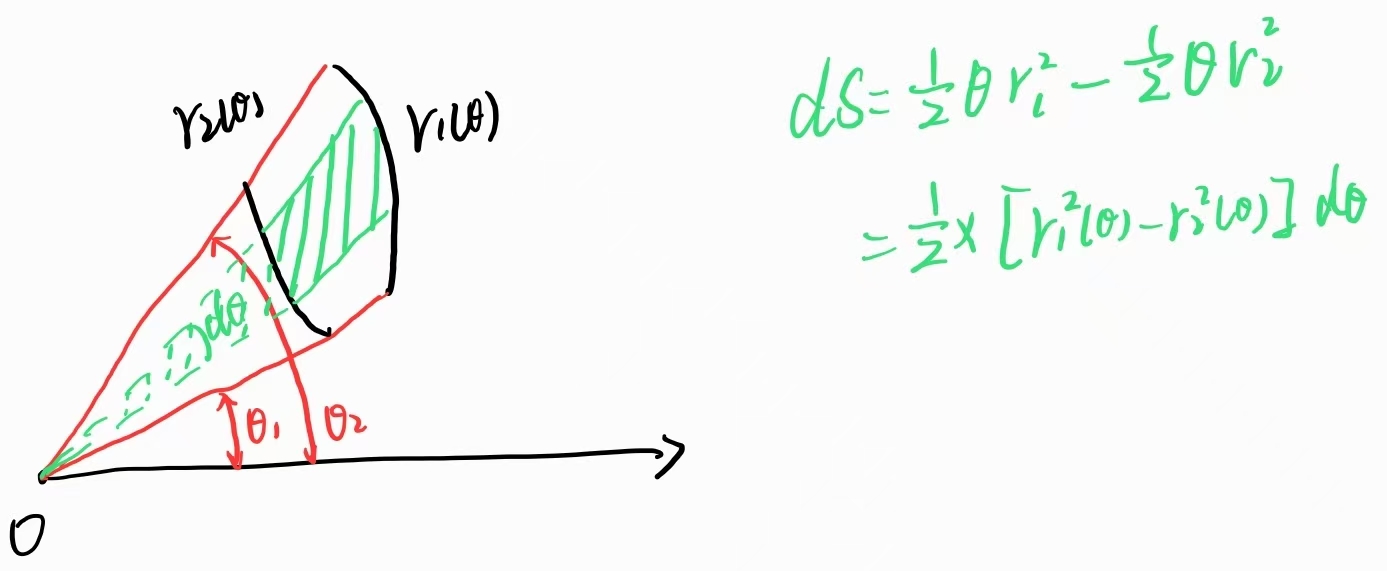 r₂(θ)
r₁(θ)
dθ
θ₁
θ₂
O
dS = ½ θ r₁² − ½ θ r₂²
= ½ × [r₁²(θ) − r₂²(θ)] dθ